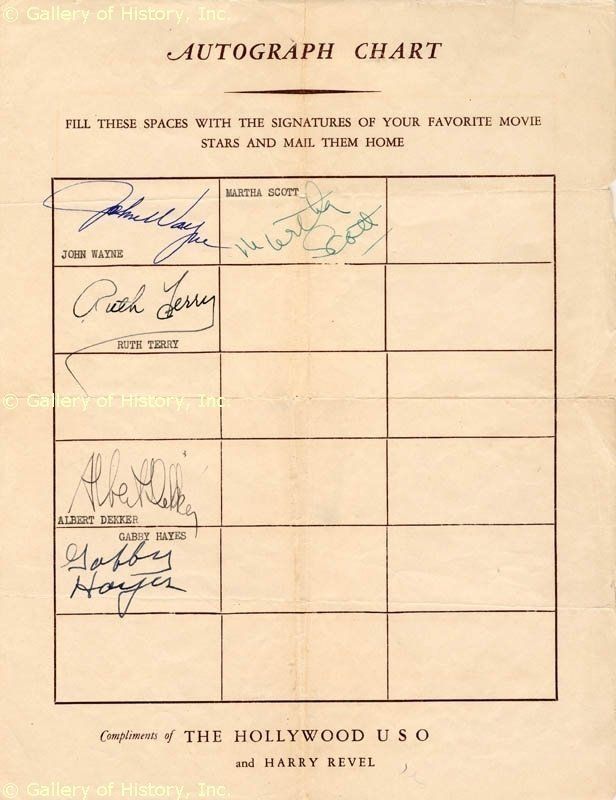 © Gallery of History, Inc.
AUTOGRAPH CHART
FILL THESE SPACES WITH THE SIGNATURES OF YOUR FAVORITE MOVIE
STARS AND MAIL THEM HOME
John Wayne
JOHN WAYNE
MARTHA SCOTT
Martha
Scott
Ruth Terry
RUTH TERRY
© Gallery of History, Inc.
Albert Dekker
ALBERT DEKKER
GABBY HAYES
Gabby
Hayes
Compliments of THE HOLLYWOOD USO
and HARRY REVEL
© Gallery of History, Inc.